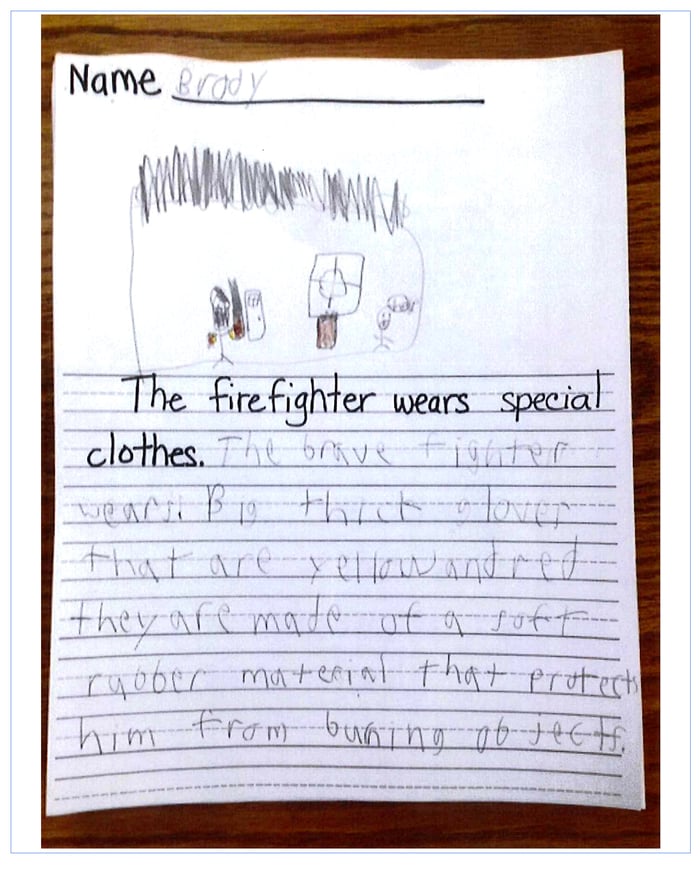 Name Brody
The firefighter wears special
clothes. The brave fighter
wears. Big thick gloves
that are yellow and red
they are made of a soft
rubber material that protects
him from buring objects.